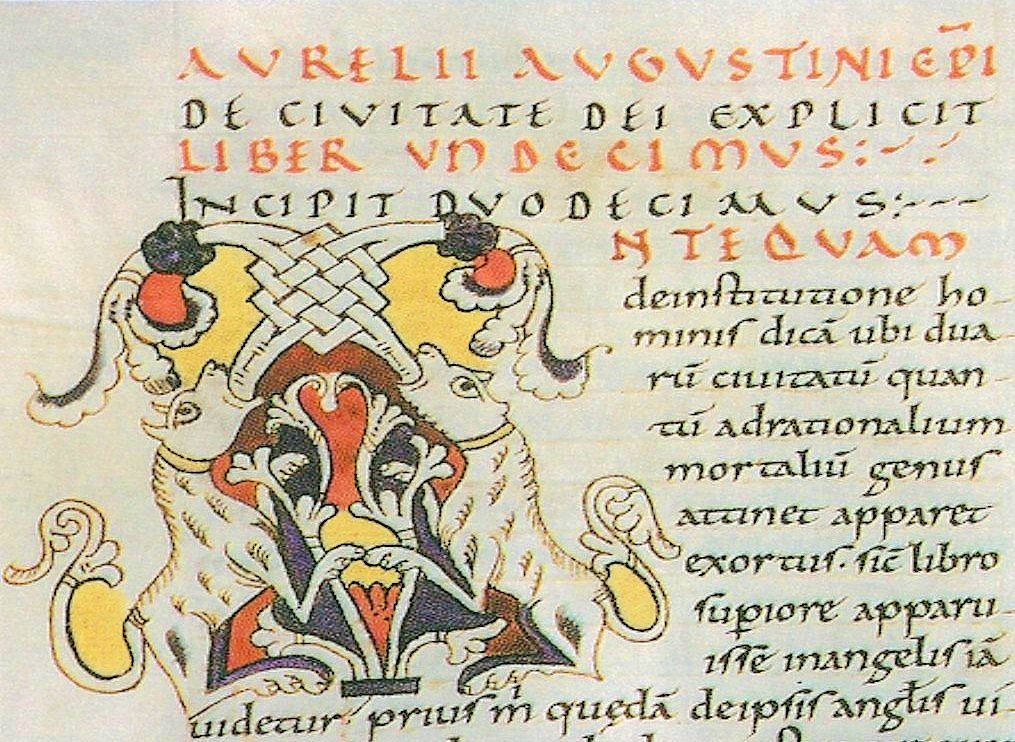 AURELII AUGUSTINI EP̄I
DE CIVITATE DEI EXPLICIT
LIBER UNDECIMUS:~.~
INCIPIT DUODECIMUS:~~~
NTEQUAM
deinstitutione ho-
minis dicā ubi dua
rū ciuitatū quan-
tū adrationalium
mortaliū genus
attinet apparet
exortus. sic̄ libro
sup̄iore apparu-
issē inangelis iā
uidetur. prius m̍ quędā deipsis angl̄is ui-